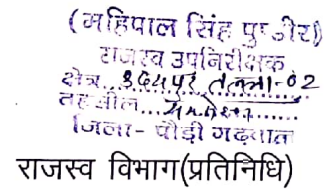 (महिपाल सिंह पुण्डीर)
राजस्व उपनिरीक्षक
क्षेत्र...उदयपुर तल्ला-02
तहसील...
जिला- पौड़ी गढ़वाल
राजस्व विभाग(प्रतिनिधि)